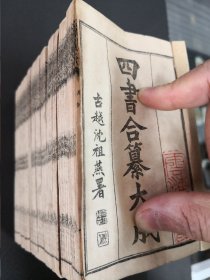 四書合纂大成
古越沈祖燕署